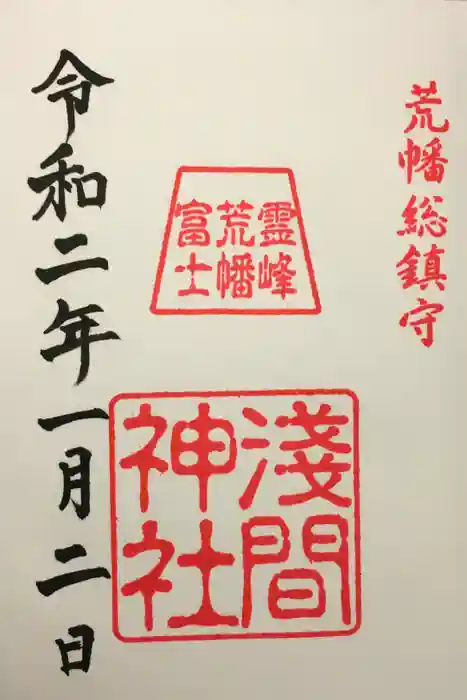 荒幡総鎮守
霊峰
荒幡
富士
淺間
神社
令和二年一月二日